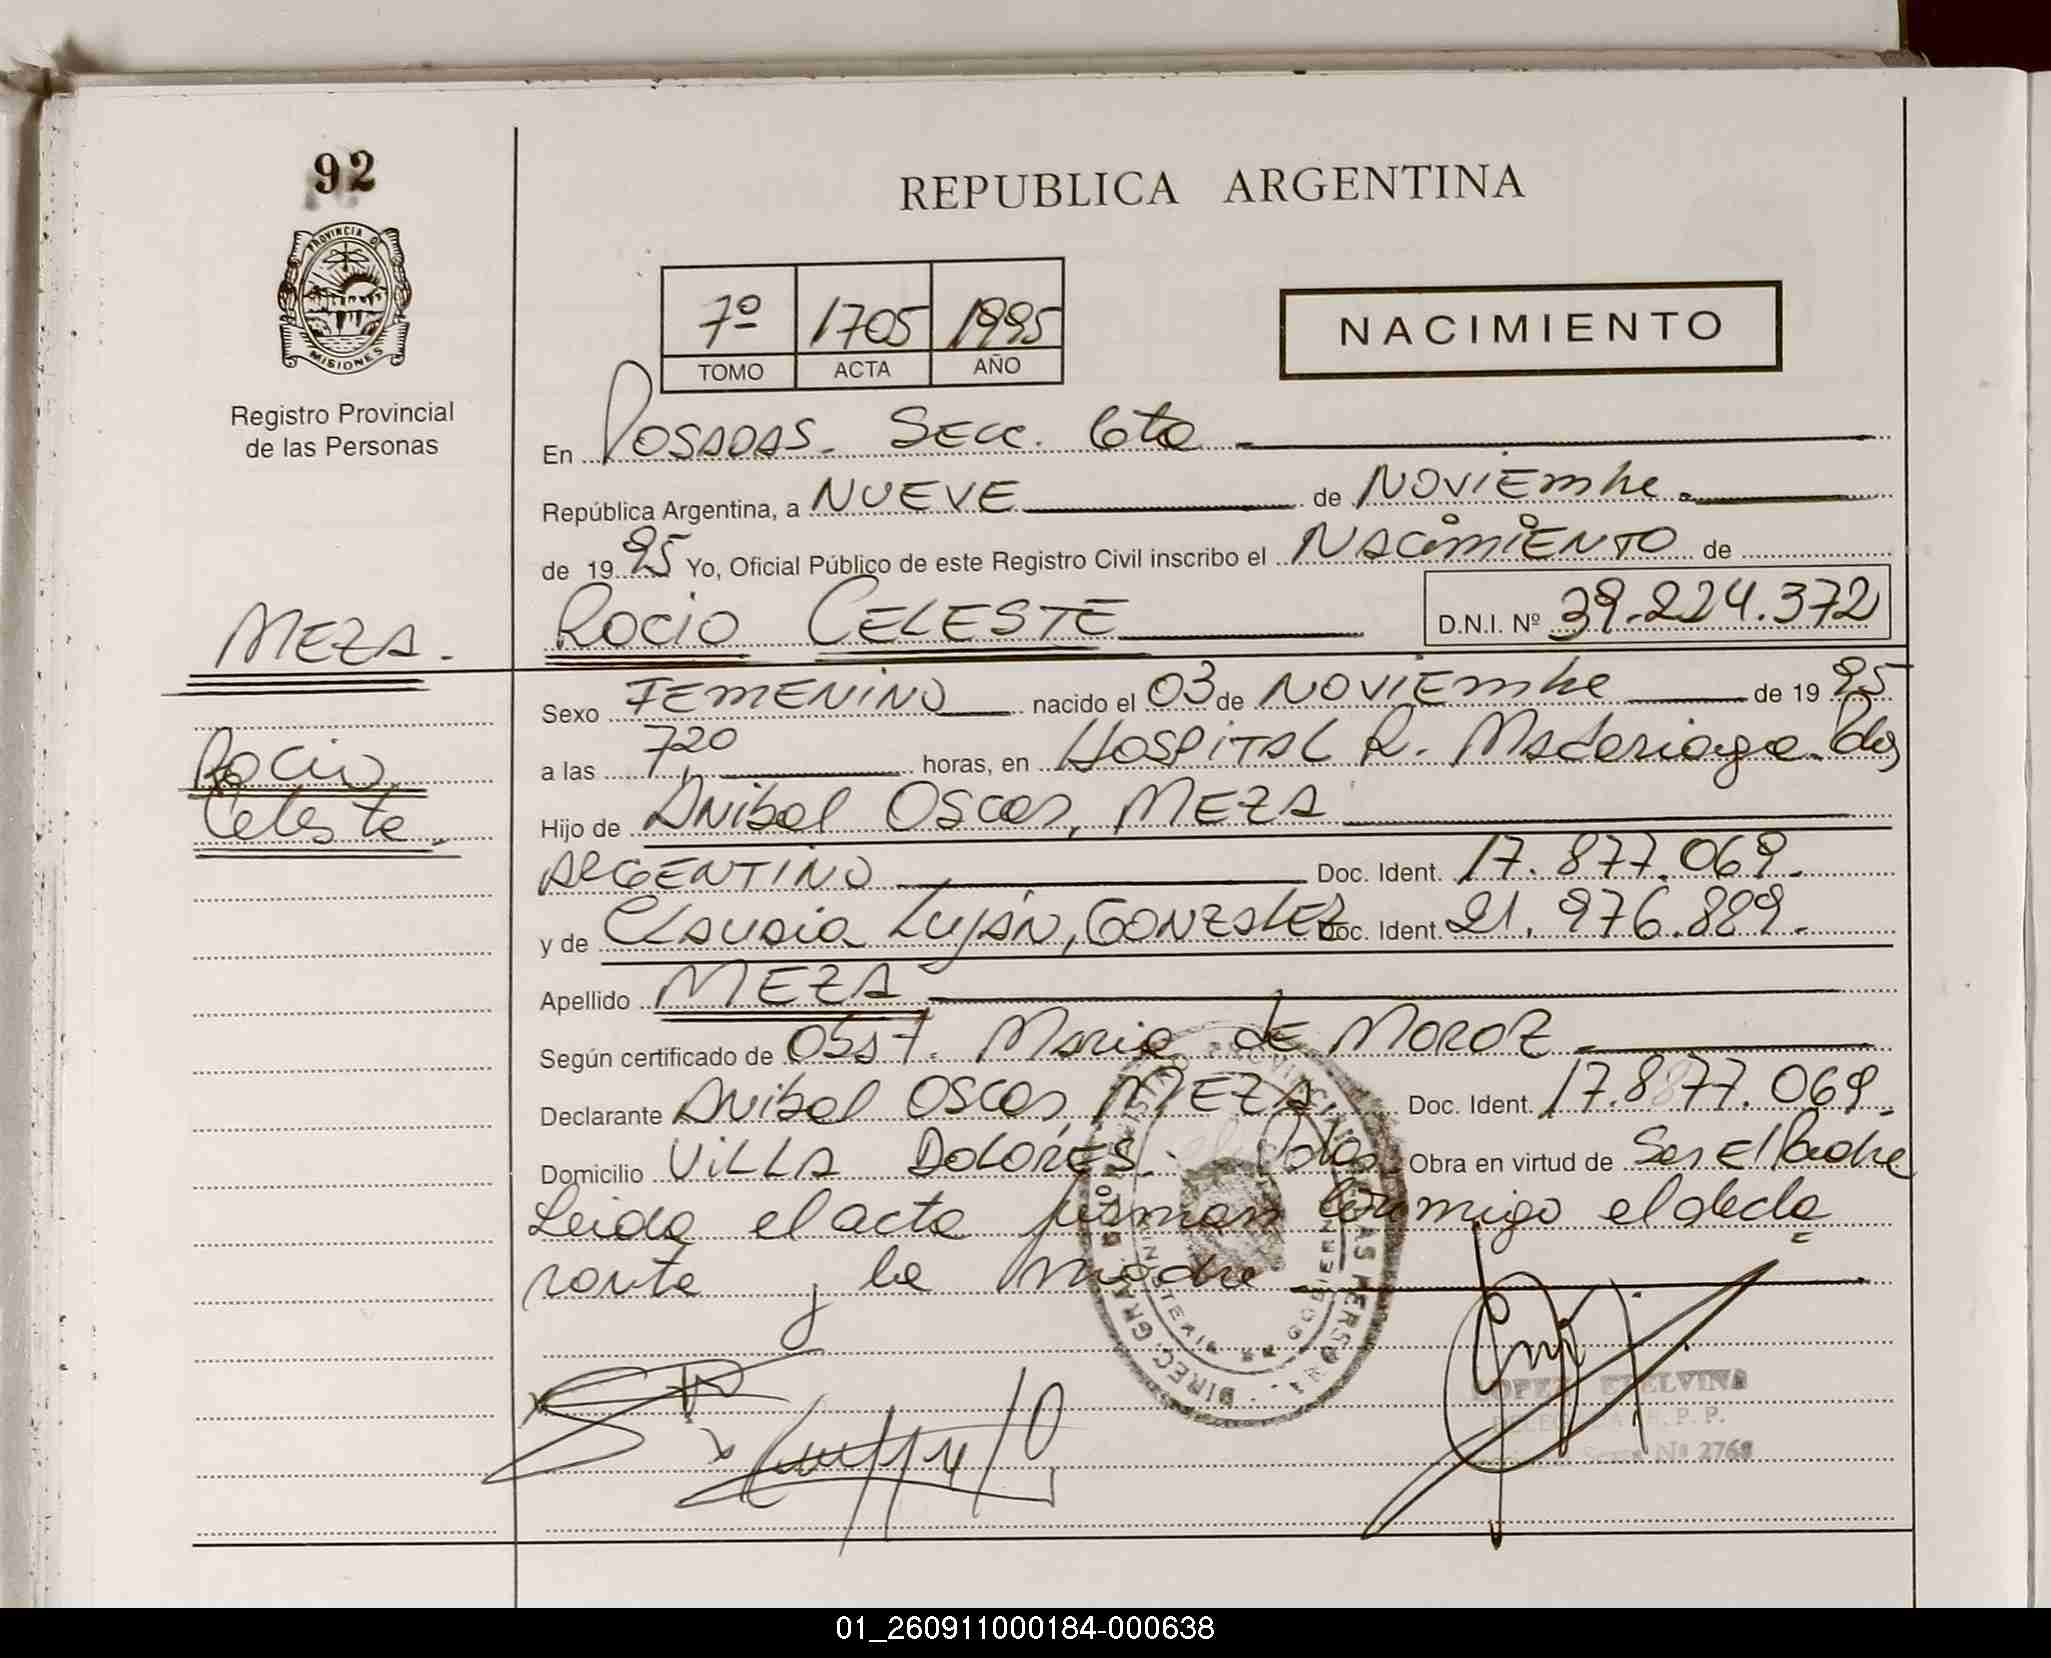 92
PROVINCIA D
MISIONES
Registro Provincial
de las Personas
REPUBLICA ARGENTINA
7º 1705 1995
TOMO ACTA AÑO
NACIMIENTO
En Posadas. Secc. 6ta
República Argentina, a NUEVE de NOVIEMbre.
de 1995 Yo, Oficial Público de este Registro Civil inscribo el NACIMIENTO de
MEZA.
ROCIO CELESTE D.N.I. Nº 39.224.372
Sexo FEMENINO nacido el 03 de NOVIEMbre de 1995
Rocio
Celeste.
a las 720 horas, en HOSPITAL R. Madariaga. Pdas
Hijo de Anibal Oscar, MEZA
ARGENTINO Doc. Ident. 17.877.069.
y de CLAUDIA Luján, GONZALEZ Doc. Ident. 21.976.889.
Apellido MEZA
Según certificado de Obst. Maria de MOROZ
Declarante Anibal Oscar, MEZA. Doc. Ident. 17.877.069.
Domicilio VILLA DOLORES. Pdas. Obra en virtud de Ser El Padre
Leida el acta firman conmigo el decla
rante y la madre
DIREC. GRAL.
LOPEZ ETELVINA
R. P. P.
Nº 2768
01_260911000184-000638